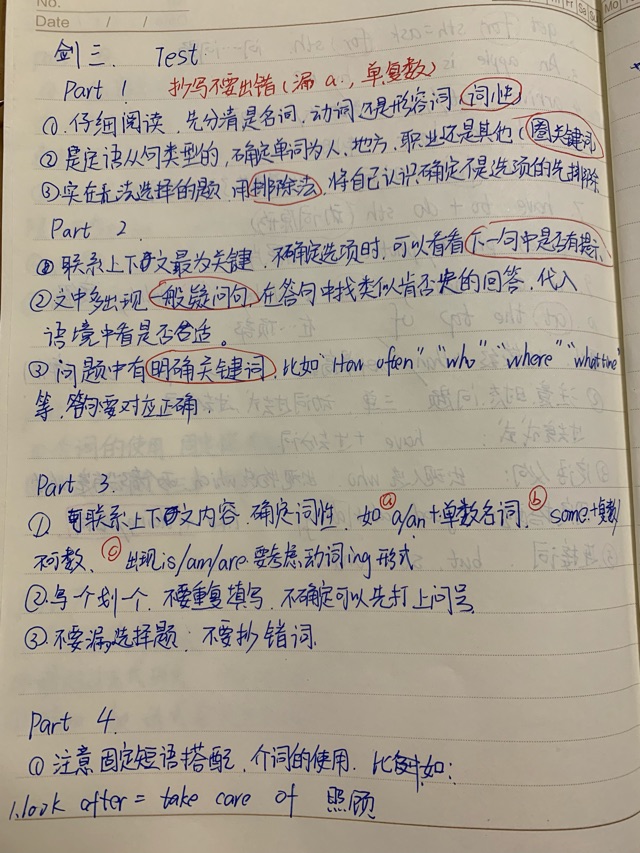 No.
Date / /
剑三. Test
Part 1 抄写不要出错(漏a., 单复数)
①. 仔细阅读, 先分清是名词, 动词还是形容词(词性)
② 是定语从句类型的, 确定单词为人, 地方, 职业还是其他(圈关键词
③ 实在无法选择的题, 用排除法, 将自己认识确定不是选项的先排除
Part 2.
① 联系上下文最为关键, 不确定选项时, 可以看看下一句中是否有提示.
② 文中多出现一般疑问句, 在答句中找类似肯否定的回答, 代入
语境中看是否合适。
③ 问题中有明确关键词, 比如"How often" "who" "where" "what time"
等, 答句要对应正确.
Part 3.
①. 可联系上下文内容, 确定词性 如 ⓐ a/an+单数名词, ⓑ some+复数/
不可数, ⓒ 出现is/am/are 要考虑动词ing形式
② 写一个划一个, 不要重复填写, 不确定可以先打上问号
③ 不要漏选择题, 不要抄错词.
Part 4.
① 注意固定短语搭配, 介词的使用. 比如:
1. look after = take care of 照顾